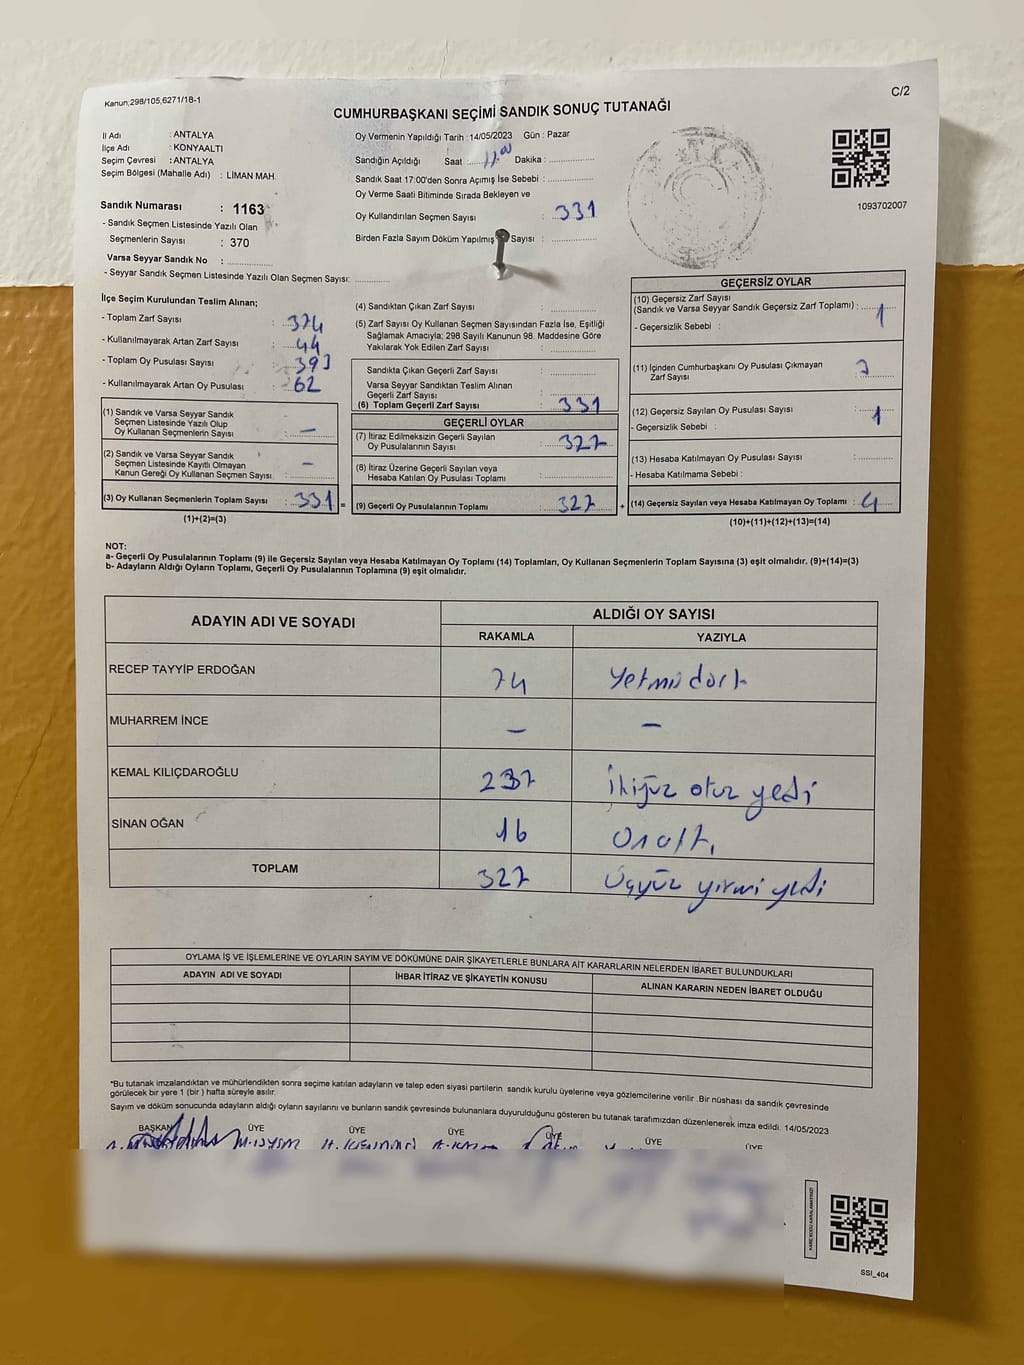 Kanun;298/105,6271/18-1
C/2
CUMHURBAŞKANI SEÇİMİ SANDIK SONUÇ TUTANAĞI
İl Adı : ANTALYA
İlçe Adı : KONYAALTI
Seçim Çevresi : ANTALYA
Seçim Bölgesi (Mahalle Adı) : LİMAN MAH.
Sandık Numarası : 1163
- Sandık Seçmen Listesinde Yazılı Olan
Seçmenlerin Sayısı : 370
Varsa Seyyar Sandık No :
- Seyyar Sandık Seçmen Listesinde Yazılı Olan Seçmen Sayısı:
Oy Vermenin Yapıldığı Tarih : 14/05/2023 Gün : Pazar
Sandığın Açıldığı Saat : Dakika :
Sandık Saat 17:00'den Sonra Açımış İse Sebebi :
Oy Verme Saati Bitiminde Sırada Bekleyen ve
Oy Kullandırılan Seçmen Sayısı : 331
Birden Fazla Sayım Döküm Yapılmış Sayısı :
1093702007
İlçe Seçim Kurulundan Teslim Alınan;
- Toplam Zarf Sayısı : 374
- Kullanılmayarak Artan Zarf Sayısı : 44
- Toplam Oy Pusulası Sayısı : 393
- Kullanılmayarak Artan Oy Pusulası : 62
(1) Sandık ve Varsa Seyyar Sandık
Seçmen Listesinde Yazılı Olup
Oy Kullanan Seçmenlerin Sayısı : –
(2) Sandık ve Varsa Seyyar Sandık
Seçmen Listesinde Kayıtlı Olmayan
Kanun Gereği Oy Kullanan Seçmen Sayısı : –
(3) Oy Kullanan Seçmenlerin Toplam Sayısı : 331 =
(1)+(2)=(3)
(4) Sandıktan Çıkan Zarf Sayısı :
(5) Zarf Sayısı Oy Kullanan Seçmen Sayısından Fazla İse, Eşitliği
Sağlamak Amacıyla; 298 Sayılı Kanunun 98. Maddesine Göre
Yakılarak Yok Edilen Zarf Sayısı :
Sandıkta Çıkan Geçerli Zarf Sayısı :
Varsa Seyyar Sandıktan Teslim Alınan
Geçerli Zarf Sayısı :
(6) Toplam Geçerli Zarf Sayısı : 331
GEÇERLİ OYLAR
(7) İtiraz Edilmeksizin Geçerli Sayılan
Oy Pusulalarının Sayısı : 327
(8) İtiraz Üzerine Geçerli Sayılan veya
Hesaba Katılan Oy Pusulası Toplamı :
(9) Geçerli Oy Pusulalarının Toplamı : 327 +
GEÇERSİZ OYLAR
(10) Geçersiz Zarf Sayısı
(Sandık ve Varsa Seyyar Sandık Geçersiz Zarf Toplamı) : 1
- Geçersizlik Sebebi :
(11) İçinden Cumhurbaşkanı Oy Pusulası Çıkmayan
Zarf Sayısı :
(12) Geçersiz Sayılan Oy Pusulası Sayısı : 1
- Geçersizlik Sebebi :
(13) Hesaba Katılmayan Oy Pusulası Sayısı :
- Hesaba Katılmama Sebebi :
(14) Geçersiz Sayılan veya Hesaba Katılmayan Oy Toplamı : 4
(10)+(11)+(12)+(13)=(14)
NOT:
a- Geçerli Oy Pusulalarının Toplamı (9) ile Geçersiz Sayılan veya Hesaba Katılmayan Oy Toplamı (14) Toplamları, Oy Kullanan Seçmenlerin Toplam Sayısına (3) eşit olmalıdır. (9)+(14)=(3)
b- Adayların Aldığı Oyların Toplamı, Geçerli Oy Pusulalarının Toplamına (9) eşit olmalıdır.
ADAYIN ADI VE SOYADI ALDIĞI OY SAYISI
RAKAMLA YAZIYLA
RECEP TAYYİP ERDOĞAN 74 Yetmiş dört
MUHARREM İNCE – –
KEMAL KILIÇDAROĞLU 237 İkiyüz otuz yedi
SİNAN OĞAN 16 Onaltı
TOPLAM 327 Üçyüz yirmi yedi
OYLAMA İŞ VE İŞLEMLERİNE VE OYLARIN SAYIM VE DÖKÜMÜNE DAİR ŞİKAYETLERLE BUNLARA AİT KARARLARIN NELERDEN İBARET BULUNDUKLARI
ADAYIN ADI VE SOYADI İHBAR İTİRAZ VE ŞİKAYETİN KONUSU ALINAN KARARIN NEDEN İBARET OLDUĞU
*Bu tutanak imzalandıktan ve mühürlendikten sonra seçime katılan adayların ve talep eden siyasi partilerin sandık kurulu üyelerine veya gözlemcilerine verilir .Bir nüshası da sandık çevresinde
görülecek bir yere 1 (bir ) hafta süreyle asılır.
Sayım ve döküm sonucunda adayların aldığı oyların sayılarını ve bunların sandık çevresinde bulunanlara duyurulduğunu gösteren bu tutanak tarafımızdan düzenlenerek imza edildi. 14/05/2023
BAŞKAN ÜYE ÜYE ÜYE ÜYE ÜYE ÜYE
SSI_404